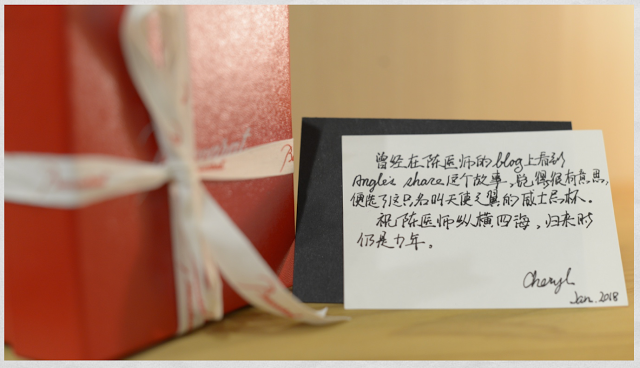 曾经在陈医师的blog上看到
Angle's share这个故事,觉得很有意思,
便选了这只名叫天使之翼的威士忌杯。
祝陈医师纵横四海,归来时
仍是少年。
Cheryl
Jan. 2018